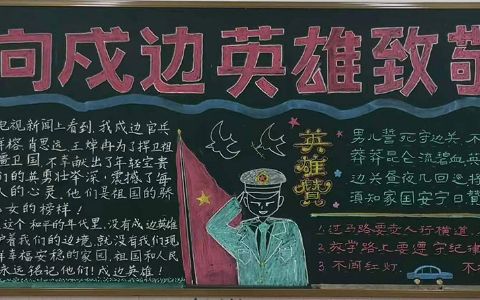 向戍边英雄致敬
电视新闻上看到，我戍边官兵
祥榕、肖思远、王焯冉为了捍卫祖
疆卫国，不幸献出了年轻宝贵
们的英勇壮举深深震撼了每
人的心灵，他们是祖国的骄
女的榜样！
这个和平的年代里，没有戍边英雄
护着我们的边境，就没有我们现
样幸福安稳的家园，祖国和人民
永远铭记他们！戍边英雄！
英雄赞
男儿誓死守边关，不
莽莽昆仑流碧血，英
边关昼夜几回巡
须知家国安宁日
1.过马路要走人行横道，
2.放学路上要遵守纪律
3.不闯红灯，不